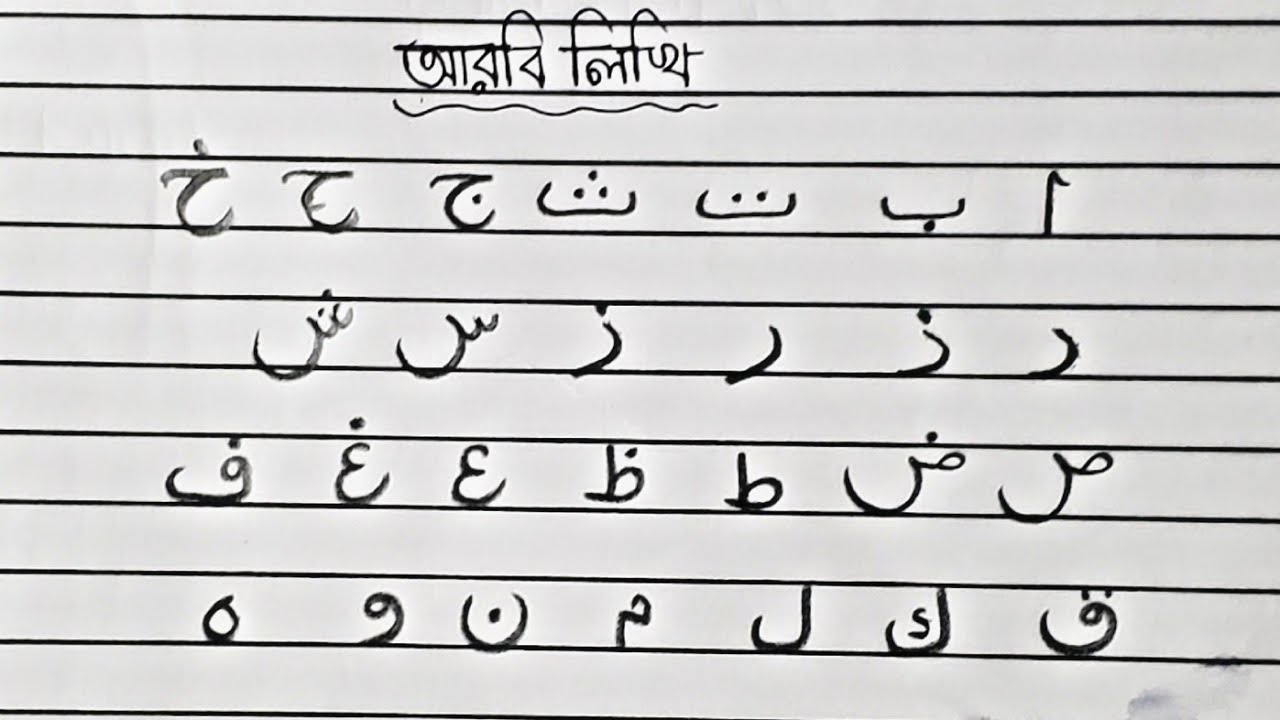 আরবি লিখি
ا ب ت ث ج ح خ
د ذ ر ز س ش
ص ض ط ظ ع غ ف
ق ك ل م ن و ه